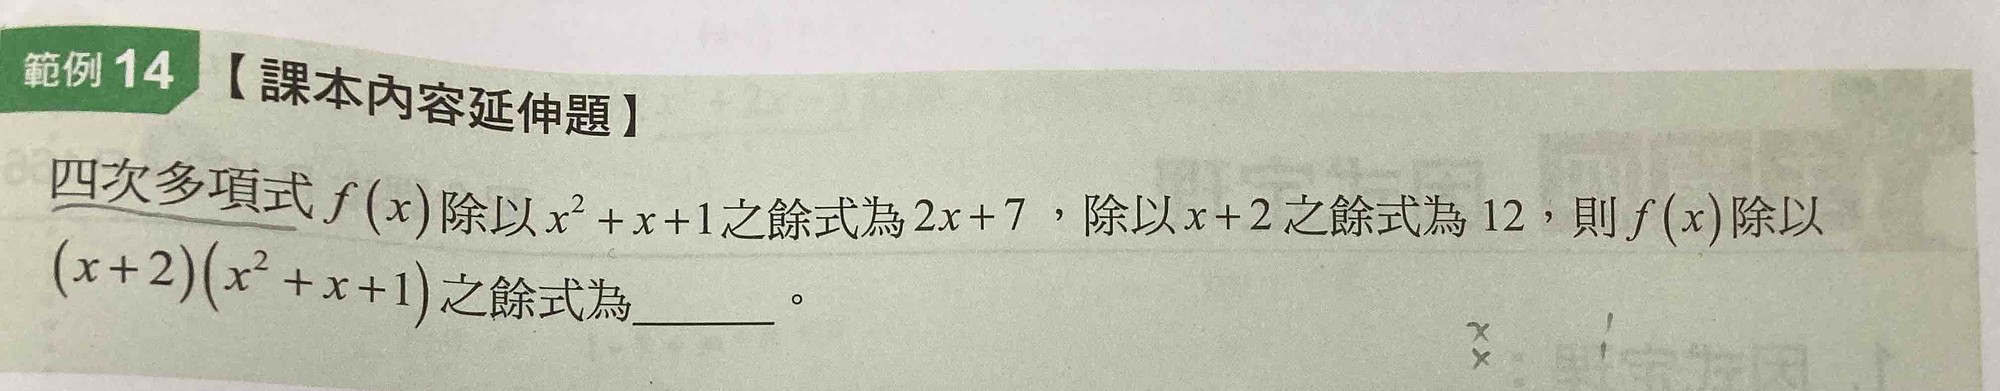 範例 14 【課本內容延伸題】
四次多項式 f(x) 除以 x² + x + 1 之餘式為 2x + 7，除以 x + 2 之餘式為 12，則 f(x) 除以
(x + 2)(x² + x + 1) 之餘式為______。
x 1
x 1